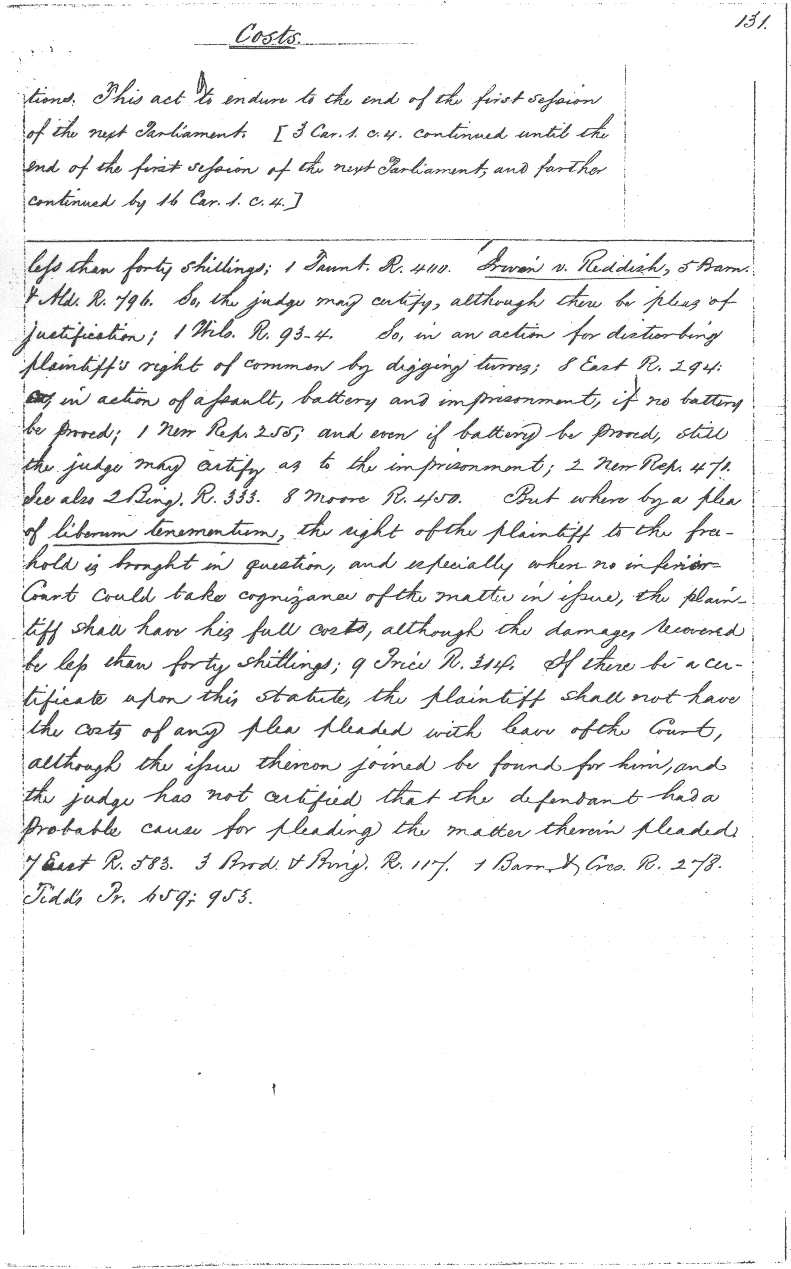 131.
Costs.
tions. This act to endure to the end of the first session
of the next Parliament. [3 Car. 1. c. 4. continued until the
end of the first session of the next Parliament, and farther
continued by 16 Car. 1. c. 4.]
less than forty shillings; 1 Taunt. R. 400. Irwin v. Reddish, 5 Barn.
& Ald. R. 796. So, the judge may certify, although there be pleas of
justification; 1 Wils. R. 93-4. So, in an action for disturbing
plaintiff's right of common by digging turves; 8 East R. 294:
in action of assault, battery and imprisonment, if no battery
be proved; 1 New Rep. 255; and even if battery be proved, still
the judge may certify as to the imprisonment; 2 New Rep. 471.
See also 2 Bing. R. 333. 8 Moore R. 450. But where by a plea
of liberum tenementum, the right of the plaintiff to the free-
hold is brought in question, and especially when no inferior
Court could take cognizance of the matter in issue, the plain-
tiff shall have his full costs, although the damages recovered
be less than forty shillings; 9 Price R. 314. If there be a cer-
tificate upon this statute, the plaintiff shall not have
the costs of any plea pleaded with leave of the Court,
although the issue thereon joined be found for him, and
the judge has not certified that the defendant had a
probable cause for pleading the matter therein pleaded.
7 East R. 583. 3 Brod. & Bing. R. 117. 1 Barn. & Cres. R. 278.
Tidd's Pr. 659; 953.